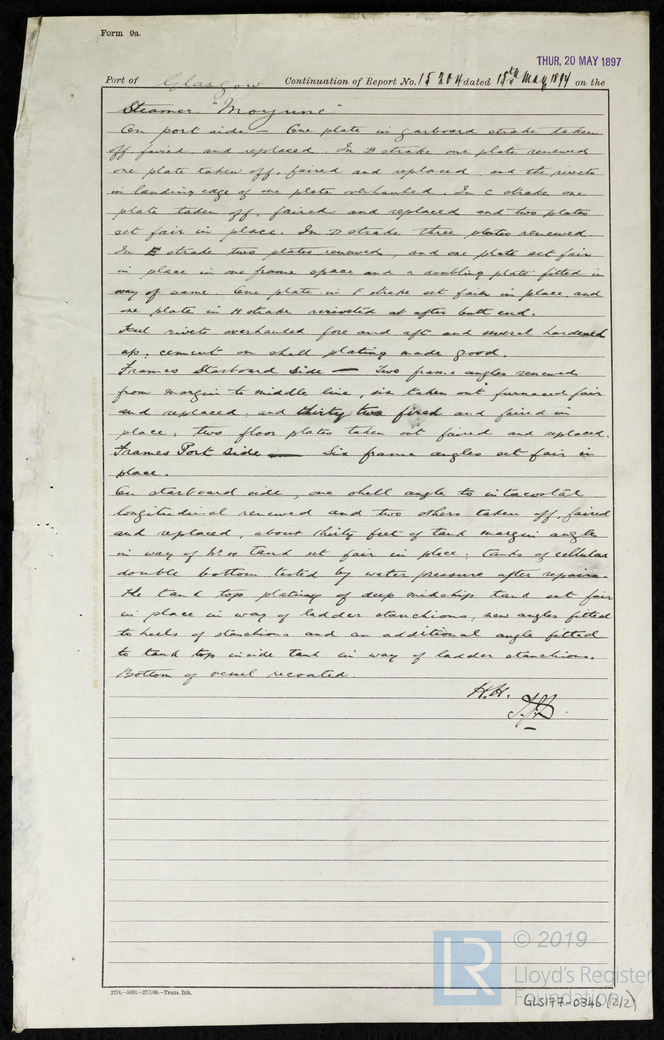 Form 9a.
THUR, 20 MAY 1897
Port of Glasgow Continuation of Report No. 15204 dated 15th May 1897 on the
Steamer "Moyune"
On port side – One plate in garboard strake taken
off faired and replaced. In B strake one plate renewed
one plate taken off, faired and replaced, and the rivets
in landing edge of one plate overhauled. In C strake one
plate taken off, faired and replaced and two plates
set fair in place. In D strake three plates renewed.
In E strake two plates renewed, and one plate set fair
in place in one frame space and a doubling plate fitted in
way of same. One plate in F strake set fair in place and
one plate in H strake reriveted at after butt end.
Keel rivets overhauled fore and aft and several hardened
up, cement on shell plating made good.
Frames Starboard Side – Two frame angles renewed
from margin to middle line, six taken out furnaced fair
and replaced, and thirty two fired and faired in
place, two floor plates taken out faired and replaced.
Frames Port Side – Six frame angles set fair in
place.
On starboard side, one shell angle to intercostal
longitudinal renewed and two others taken off, faired
and replaced, about thirty feet of tank margin angle
in way of tank set fair in place; tanks of cellular
double bottom tested by water pressure after repairs.
The tank top plating of deep midship tank set fair
in place in way of ladder stanchions, new angles fitted
to heels of stanchions and an additional angle fitted
to tank top inside tank in way of ladder stanchions.
Bottom of vessel recoated.
H.H.
2274.—5000.—27/1/96.—Trans. Ink.
LR © 2019
Lloyd's Register
Foundation
GLS177-0346 (2/2)